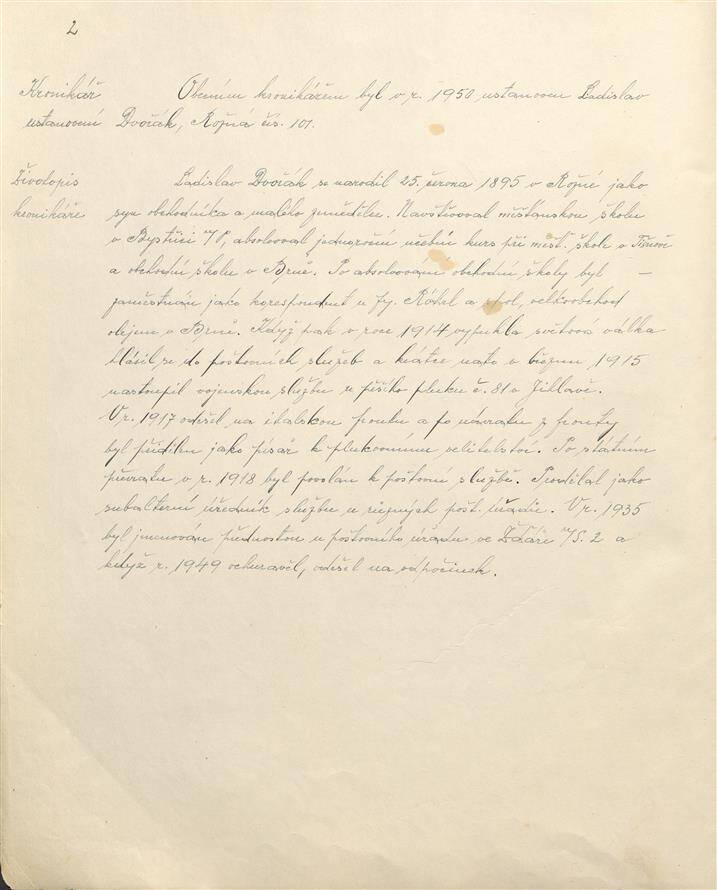 2
Kronikář Obecním kronikářem byl v r. 1950 ustanoven Ladislav
ustanovení Dvořák, Rožná čís. 101.
Životopis Ladislav Dvořák se narodil 25. června 1895 v Rožné jako
kronikáře syn obchodníka a malého zemědělce. Navštěvoval měšťanskou školu
v Bystřici n/P, absolvoval jednoroční učební kurs při měšť. škole v Tišnově
a obchodní školu v Brně. Po absolvování obchodní školy byl –
zaměstnán jako korespondent u fy. a spol, velkoobchod
olejem v Brně. Když pak v roce 1914 vypukla světová válka
hlásil se do poštovních služeb a krátce nato v březnu 1915
nastoupil vojenskou službu u pěšího pluku č. 81 v Jihlavě.
V r. 1917 odešel na italskou frontu a po návratu z fronty
byl přidělen jako písař k plukovnímu velitelství. Po státním
převratu v r. 1918 byl povolán k poštovní službě. Prodělal jako
subalterní úředník službu u různých pošt. úřadů. V r. 1935
byl jmenován přednostou u poštovního úřadu ve Žďáře n/S. 2 a
když r. 1949 ochuravěl, odešel na odpočinek.